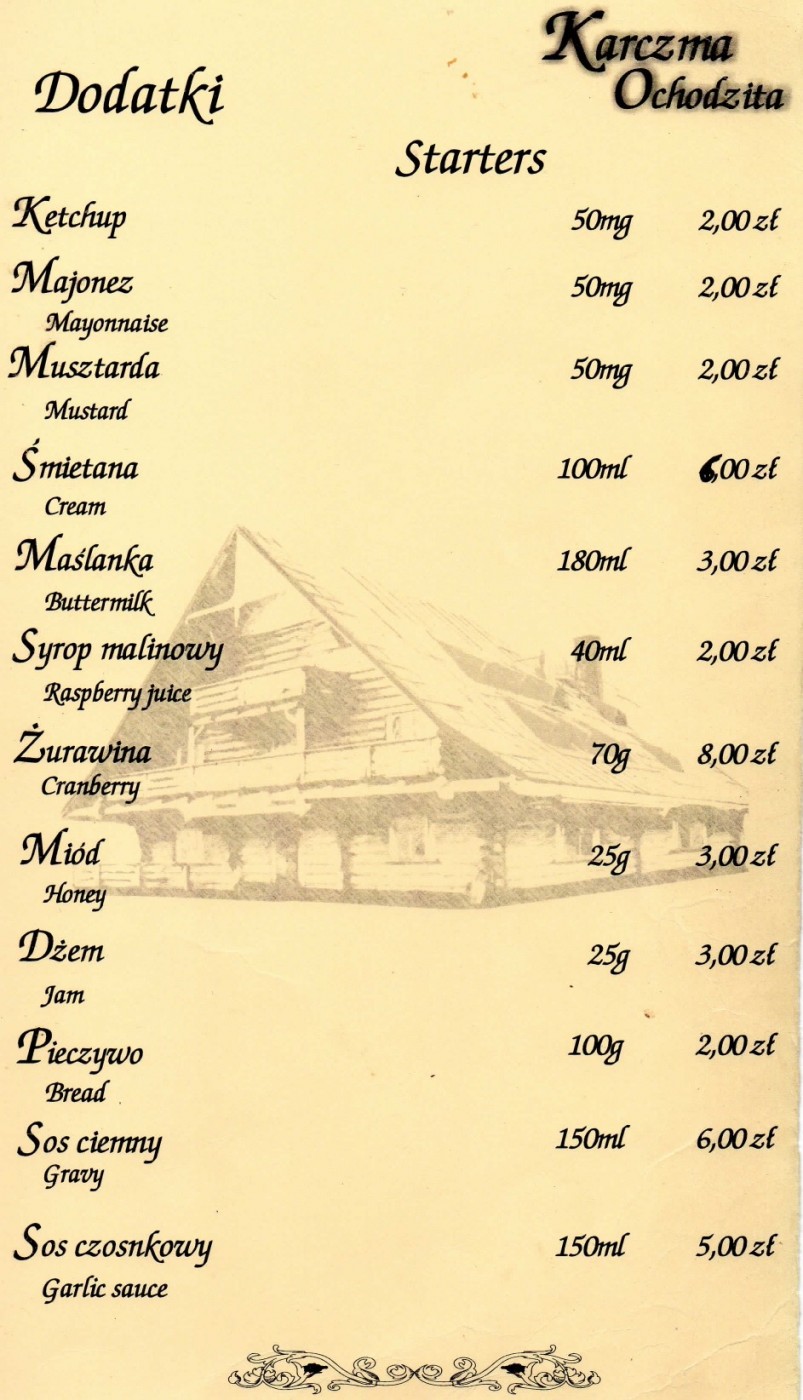 Karczma
Ochodzita
Dodatki
Starters
Ketchup 50mg 2,00 zł
Majonez 50mg 2,00 zł
Mayonnaise
Musztarda 50mg 2,00 zł
Mustard
Śmietana 100ml 6,00 zł
Cream
Maślanka 180ml 3,00 zł
Buttermilk
Syrop malinowy 40ml 2,00 zł
Raspberry juice
Żurawina 70g 8,00 zł
Cranberry
Miód 25g 3,00 zł
Honey
Dżem 25g 3,00 zł
Jam
Pieczywo 100g 2,00 zł
Bread
Sos ciemny 150ml 6,00 zł
Gravy
Sos czosnkowy 150ml 5,00 zł
Garlic sauce